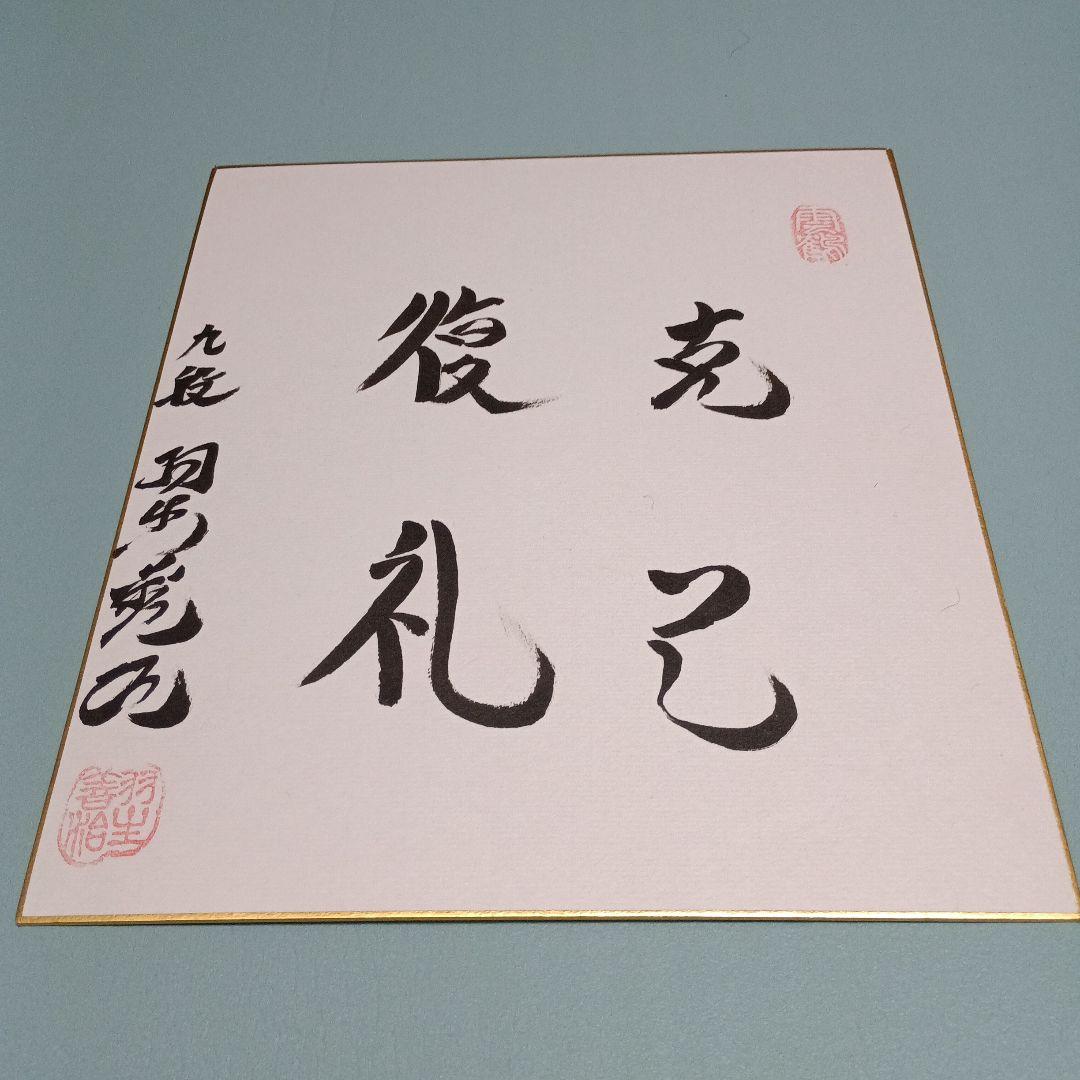 雲鶴
克己
復礼
九段 羽生善治
羽生
善治